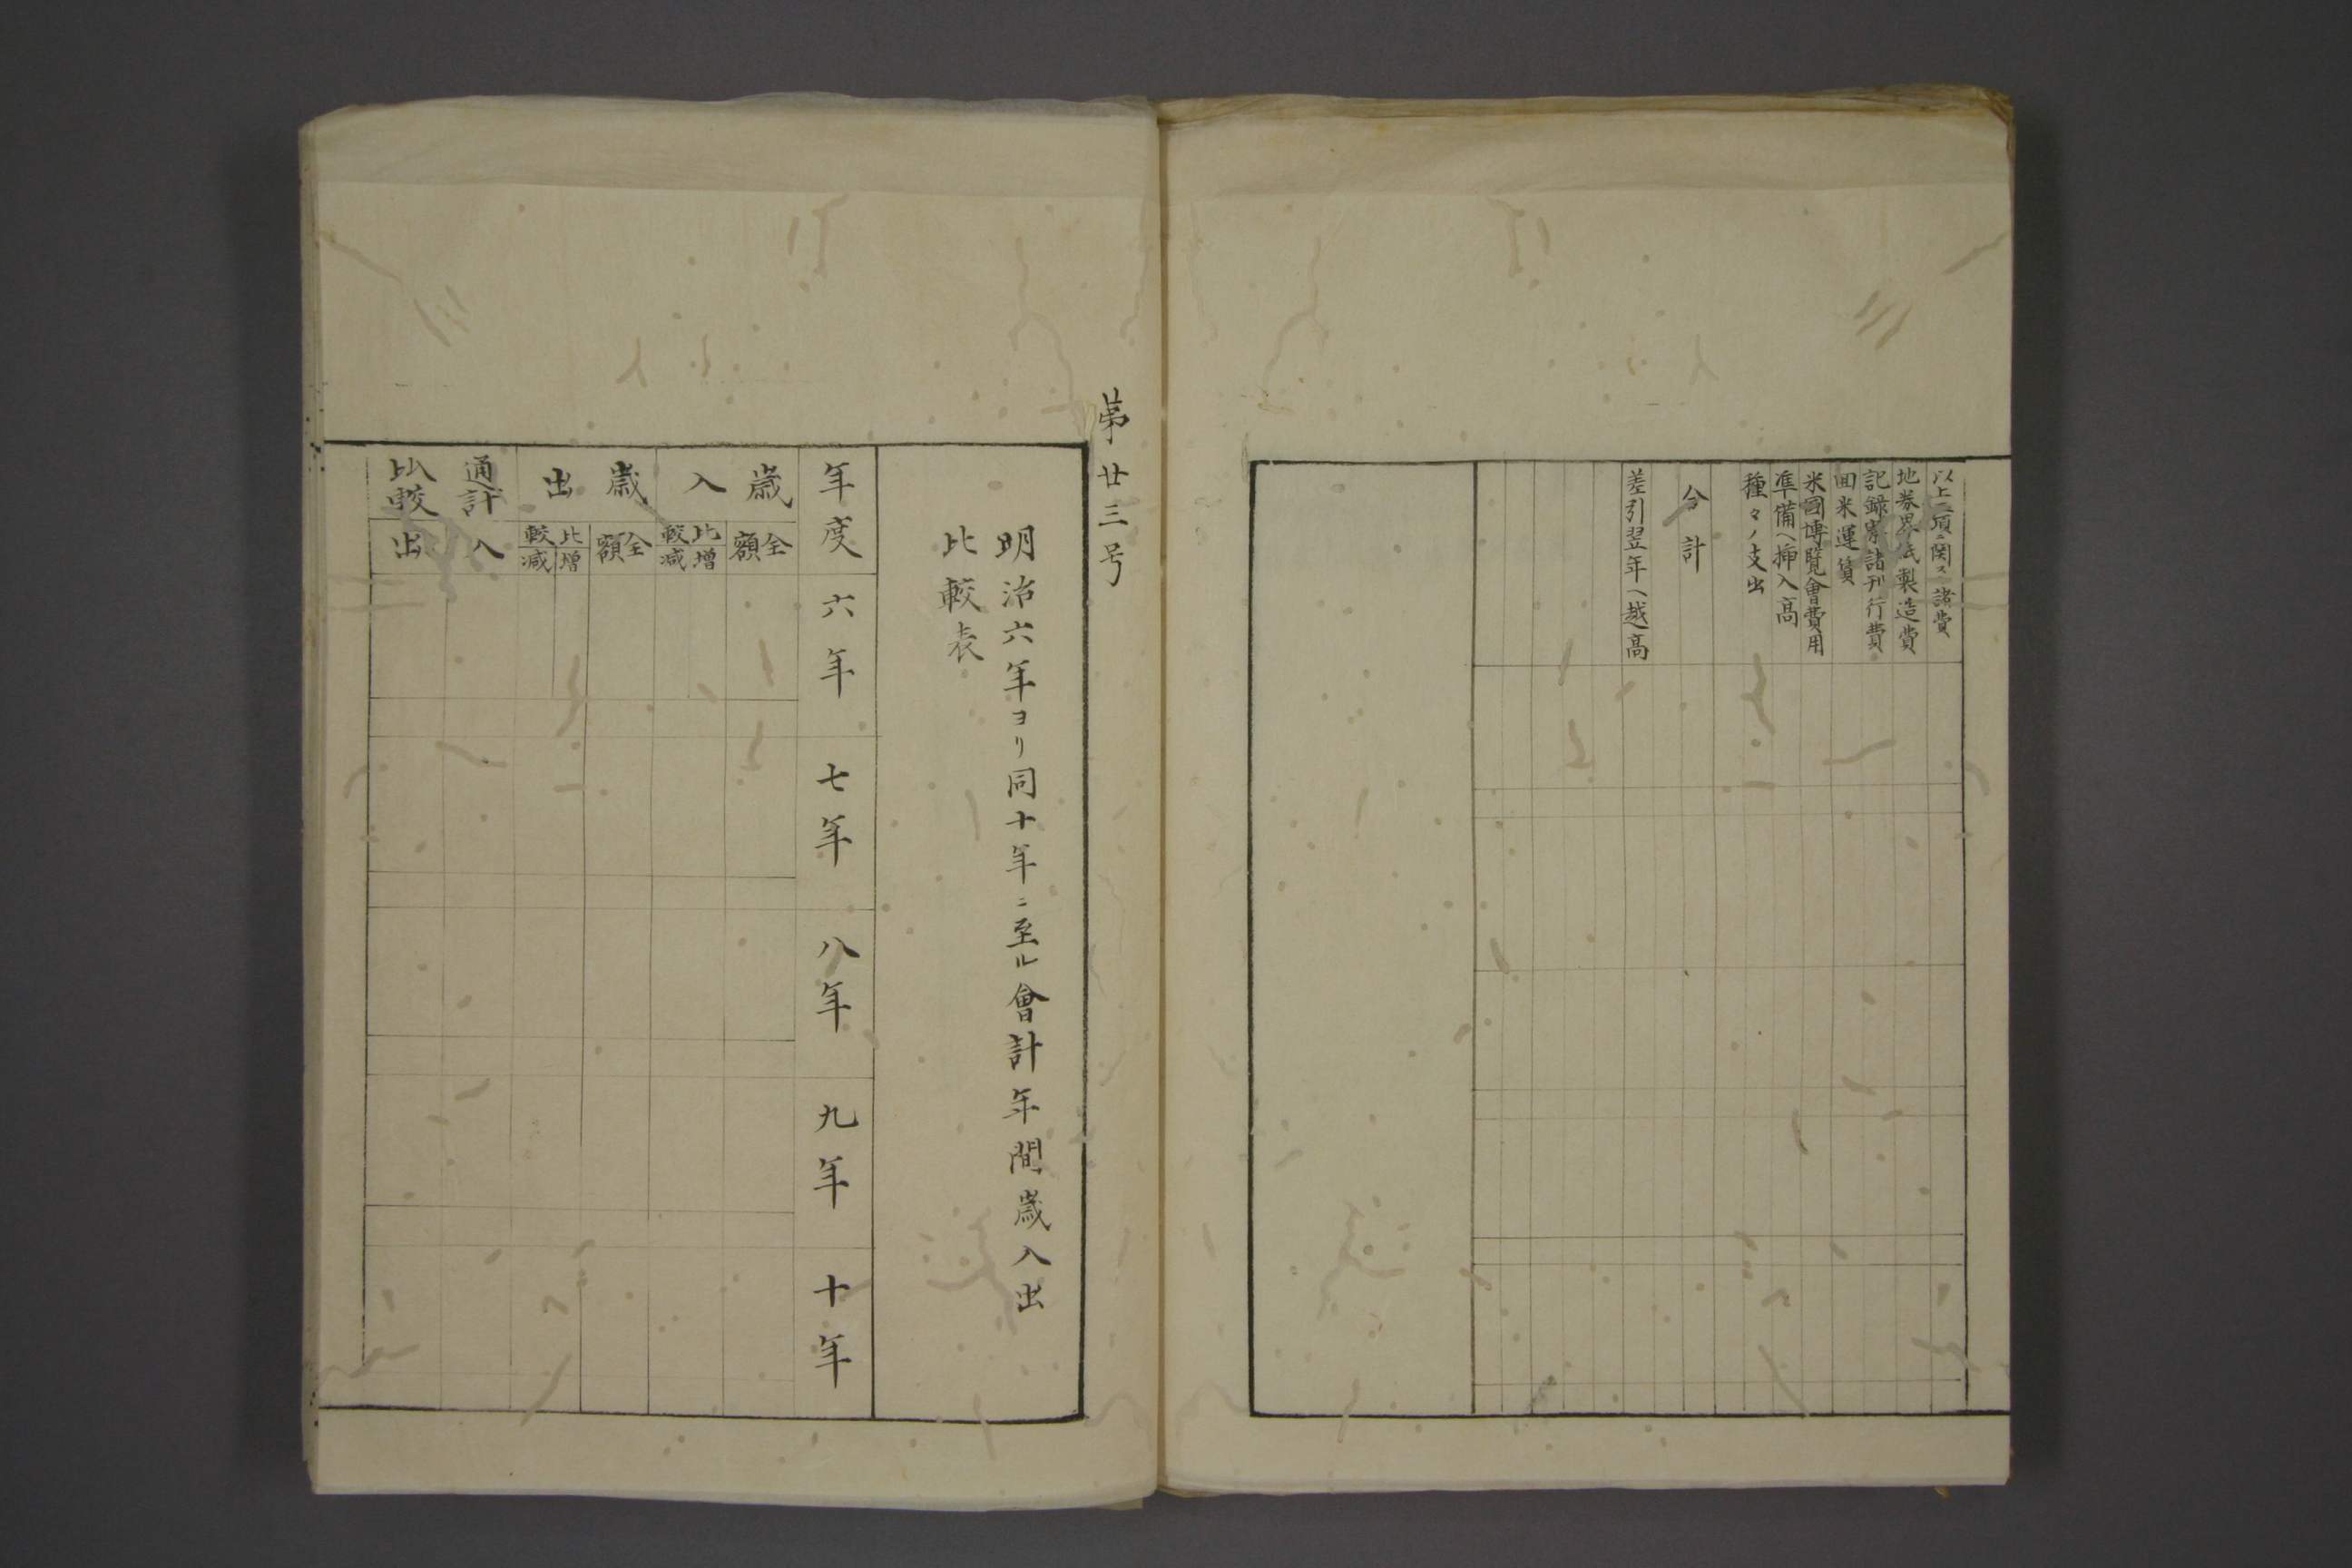 以上二項ニ関スル諸費
地券界紙製造費
記録寮諸刊行費
回米運賃
米國博覧會費用
準備ヘ挿入高
種々ノ支出
合計
差引翌年ヘ越高
第廿三号
明治六年ヨリ同十年ニ至ル會計年間歳入出
比較表
年度
六年
七年
八年
九年
十年
歳入
全額
比較
増
減
歳出
全額
比較
増
減
通計
比較
入
出